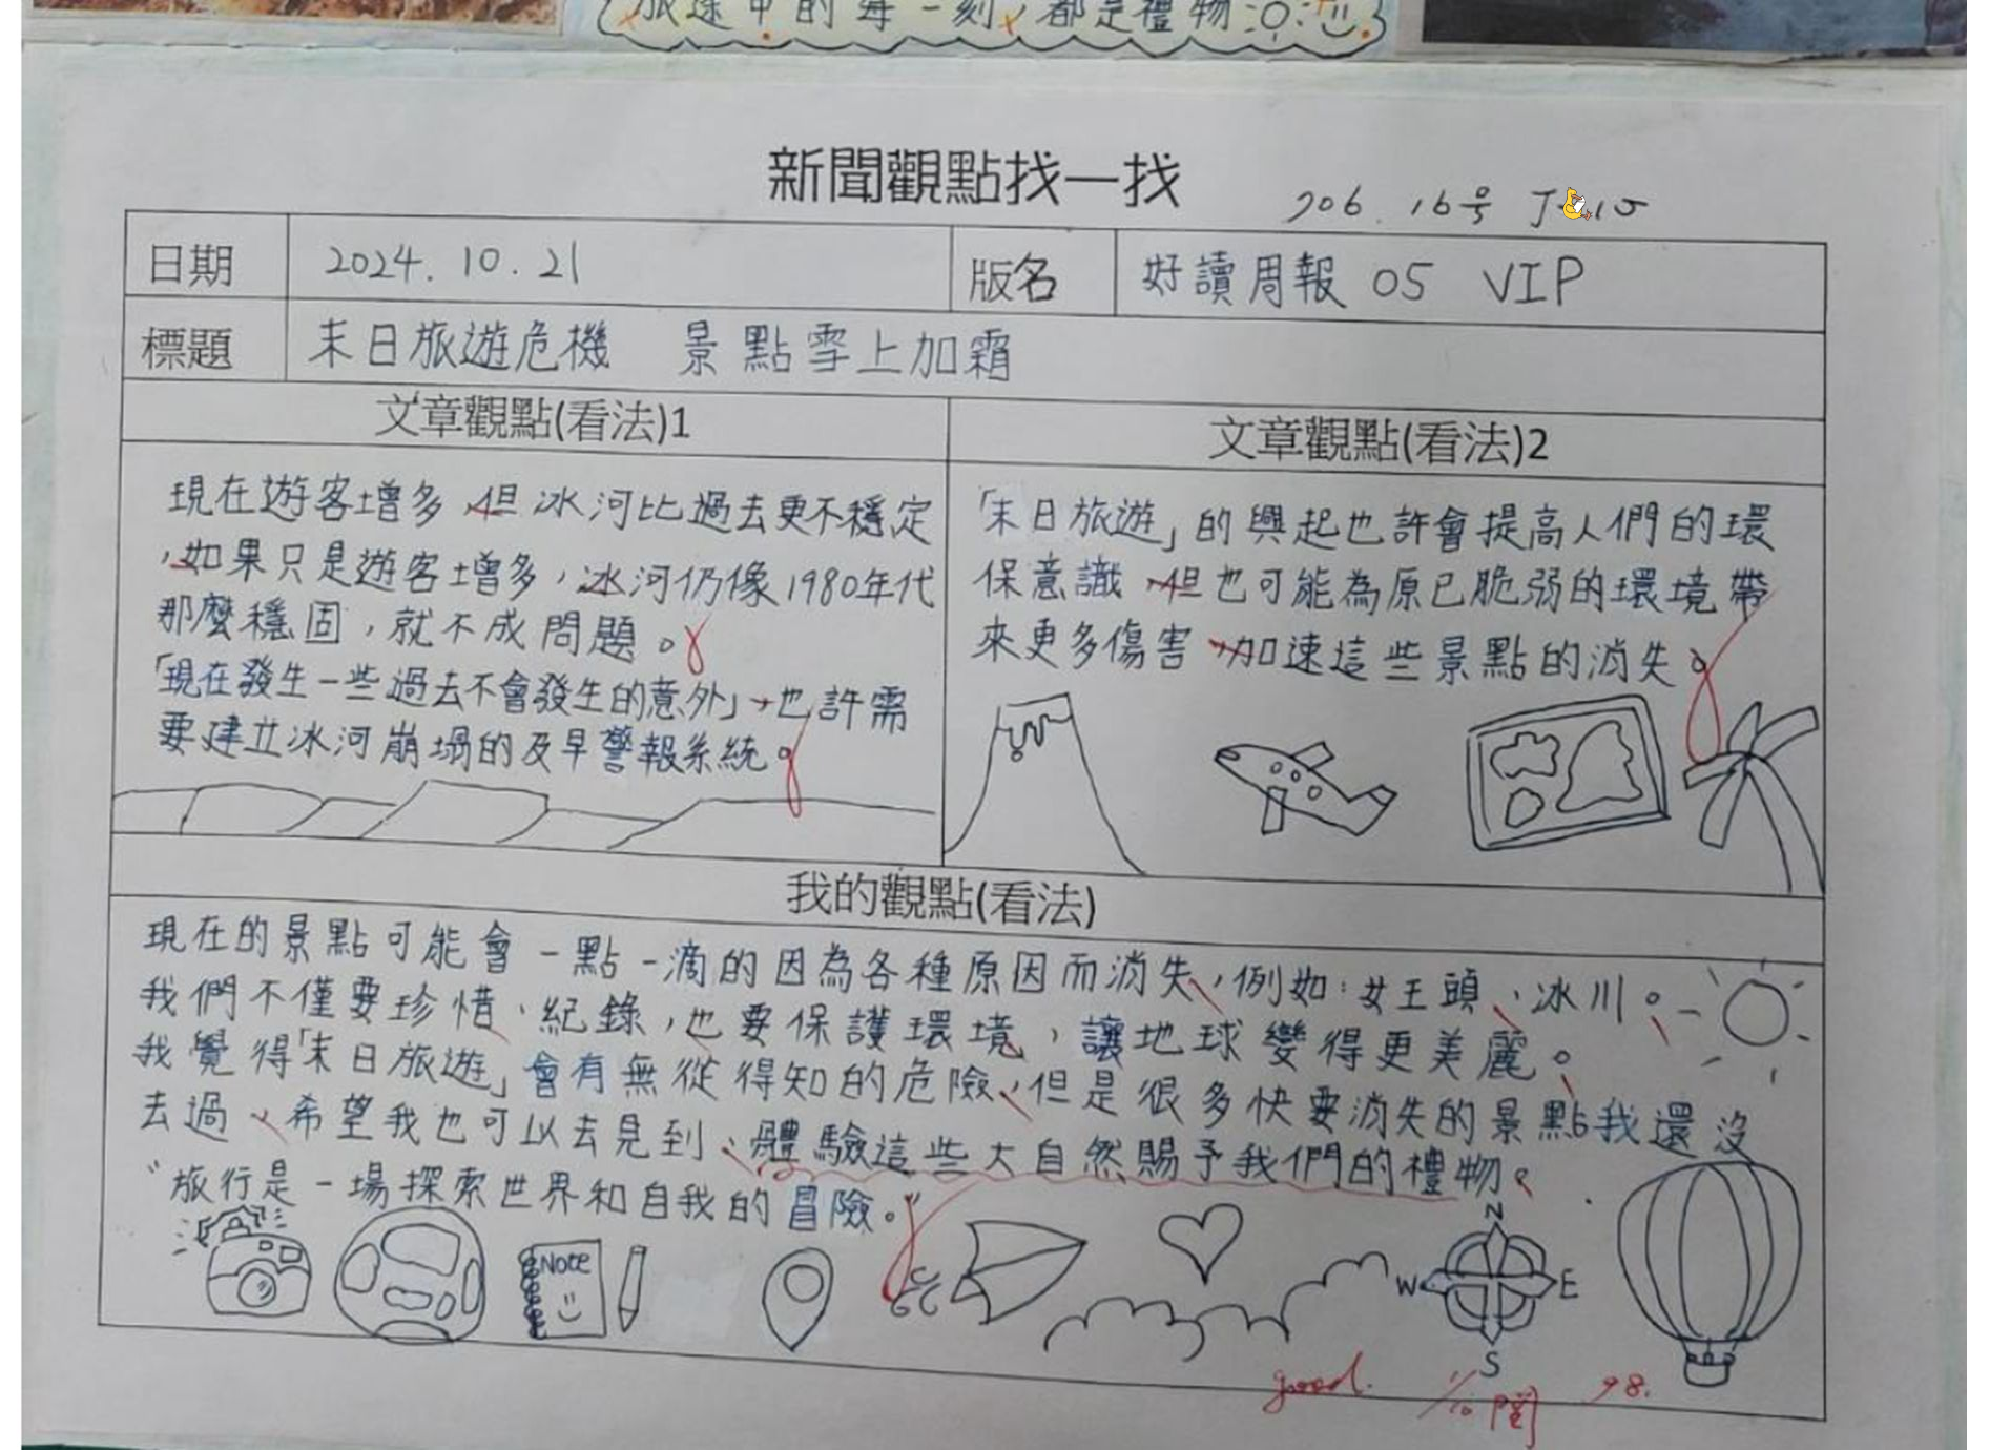 旅途中的每一刻,都是禮物
新聞觀點找一找
206. 16号
日期 2024. 10. 21 版名 好讀周報 05 VIP
標題 末日旅遊危機 景點雪上加霜
文章觀點(看法)1
現在遊客增多,但冰河比過去更不穩定
,如果只是遊客增多,冰河仍像1980年代
那麼穩固,就不成問題。
「現在發生一些過去不會發生的意外」,也許需
要建立冰河崩塌的及早警報系統。
文章觀點(看法)2
「末日旅遊」的興起也許會提高人們的環
保意識,但也可能為原已脆弱的環境帶
來更多傷害,加速這些景點的消失。
我的觀點(看法)
現在的景點可能會一點一滴的因為各種原因而消失,例如:女王頭、冰川。
我們不僅要珍惜、紀錄,也要保護環境,讓地球變得更美麗。
我覺得「末日旅遊」會有無從得知的危險,但是很多快要消失的景點我還沒
去過,希望我也可以去見到、體驗這些大自然賜予我們的禮物。
"旅行是一場探索世界和自我的冒險。"
Note
N
W E
S
good. 1/10 閱 98.